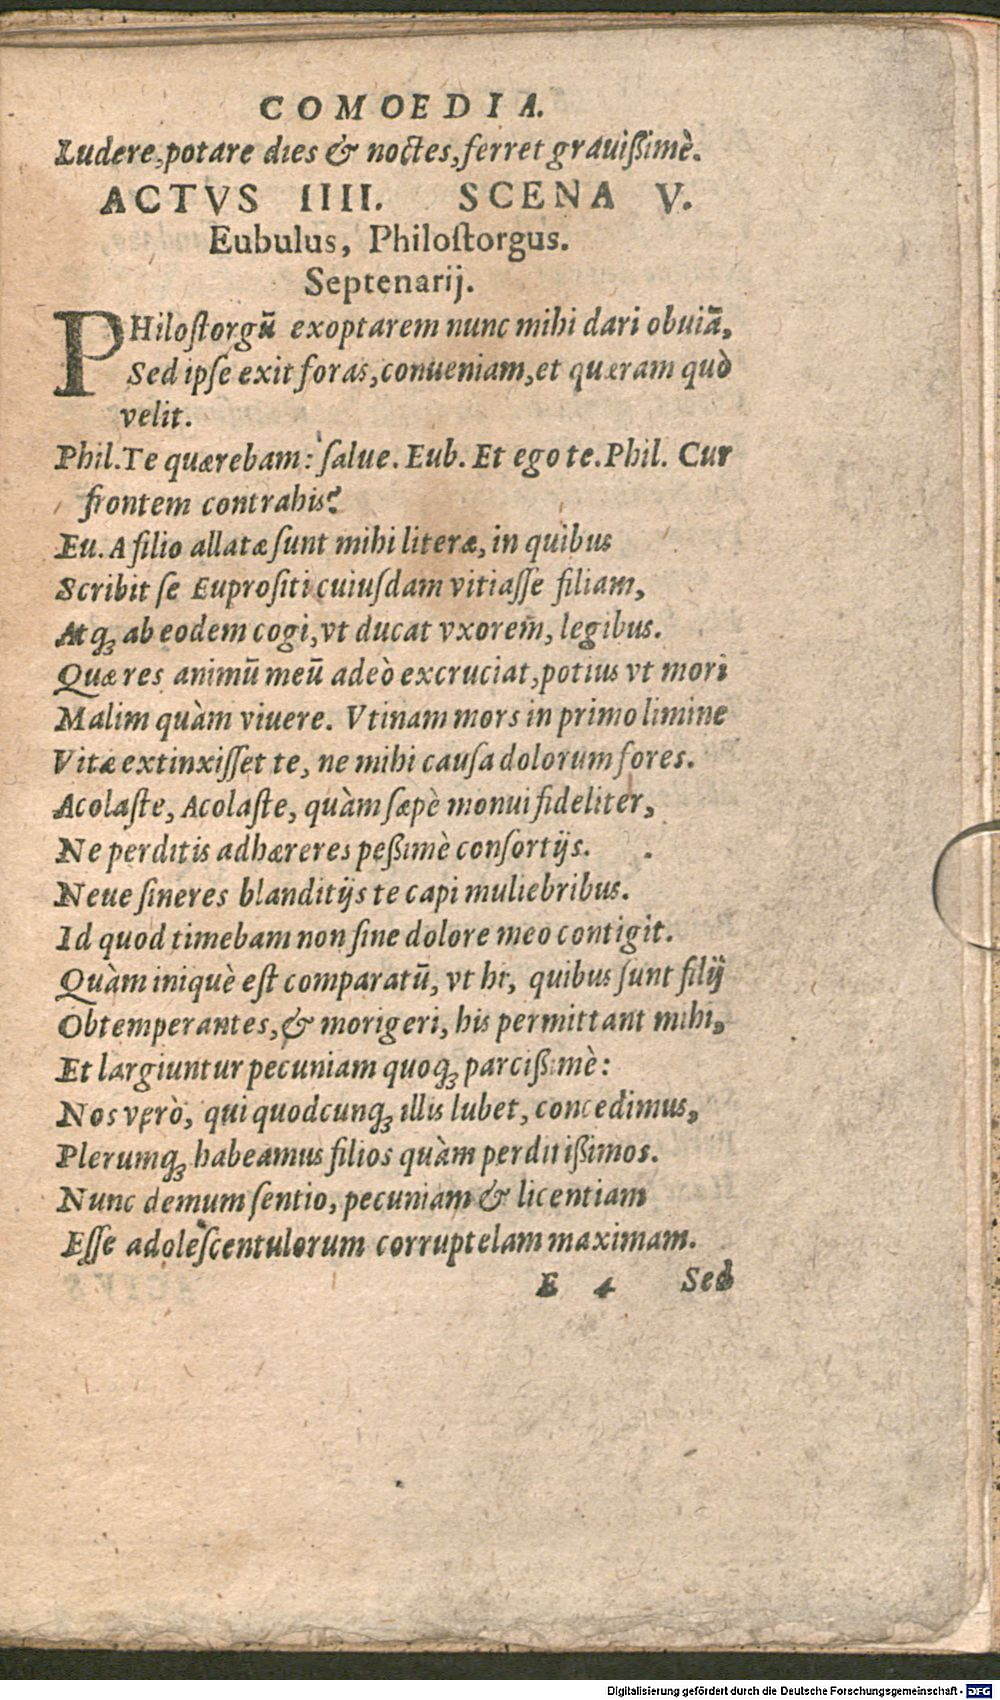 COMOEDIA.
Ludere, potare dies & noctes, ferret grauißimè.
ACTVS IIII. SCENA V.
Eubulus, Philoſtorgus.
Septenarij.
PHiloſtorgū exoptarem nunc mihi dari obuiā,
Sed ipſe exit foras, conueniam, et quæram quò
velit.
Phil. Te quærebam: ſalue. Eub. Et ego te. Phil. Cur
frontem contrahis?
Eu. A filio allatæ ſunt mihi literæ, in quibus
Scribit ſe Euproſiti cuiuſdam vitiaſſe filiam,
Atq́; ab eodem cogi, vt ducat vxorem, legibus.
Quæ res animū meū adeò excruciat, potius vt mori
Malim quàm viuere. Vtinam mors in primo limine
Vitæ extinxiſſet te, ne mihi cauſa dolorum fores.
Acolaſte, Acolaſte, quàm ſæpè monui fideliter,
Ne perditis adhæreres peßimè conſortijs.
Neue ſineres blanditijs te capi muliebribus.
Id quod timebam non ſine dolore meo contigit.
Quàm iniquè eſt comparatū, vt hi, quibus ſunt filij
Obtemperantes, & morigeri, his permittant mihi,
Et largiuntur pecuniam quoq; parcißimè:
Nos verò, qui quodcunq; illis lubet, concedimus,
Plerumq; habeamus filios quàm perditißimos.
Nunc demum ſentio, pecuniam & licentiam
Eſſe adoleſcentulorum corruptelam maximam.
E 4 Sed
Digitalisierung gefördert durch die Deutsche Forschungsgemeinschaft - DFG